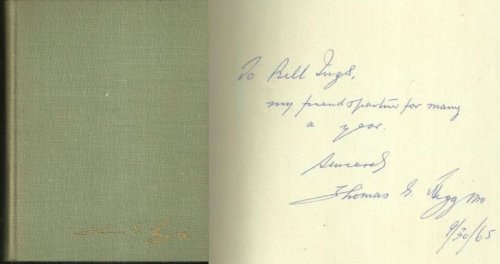 To Bill Ings,
my friend & partner for many
a year.
Sincerely
Thomas G.
9/30/65